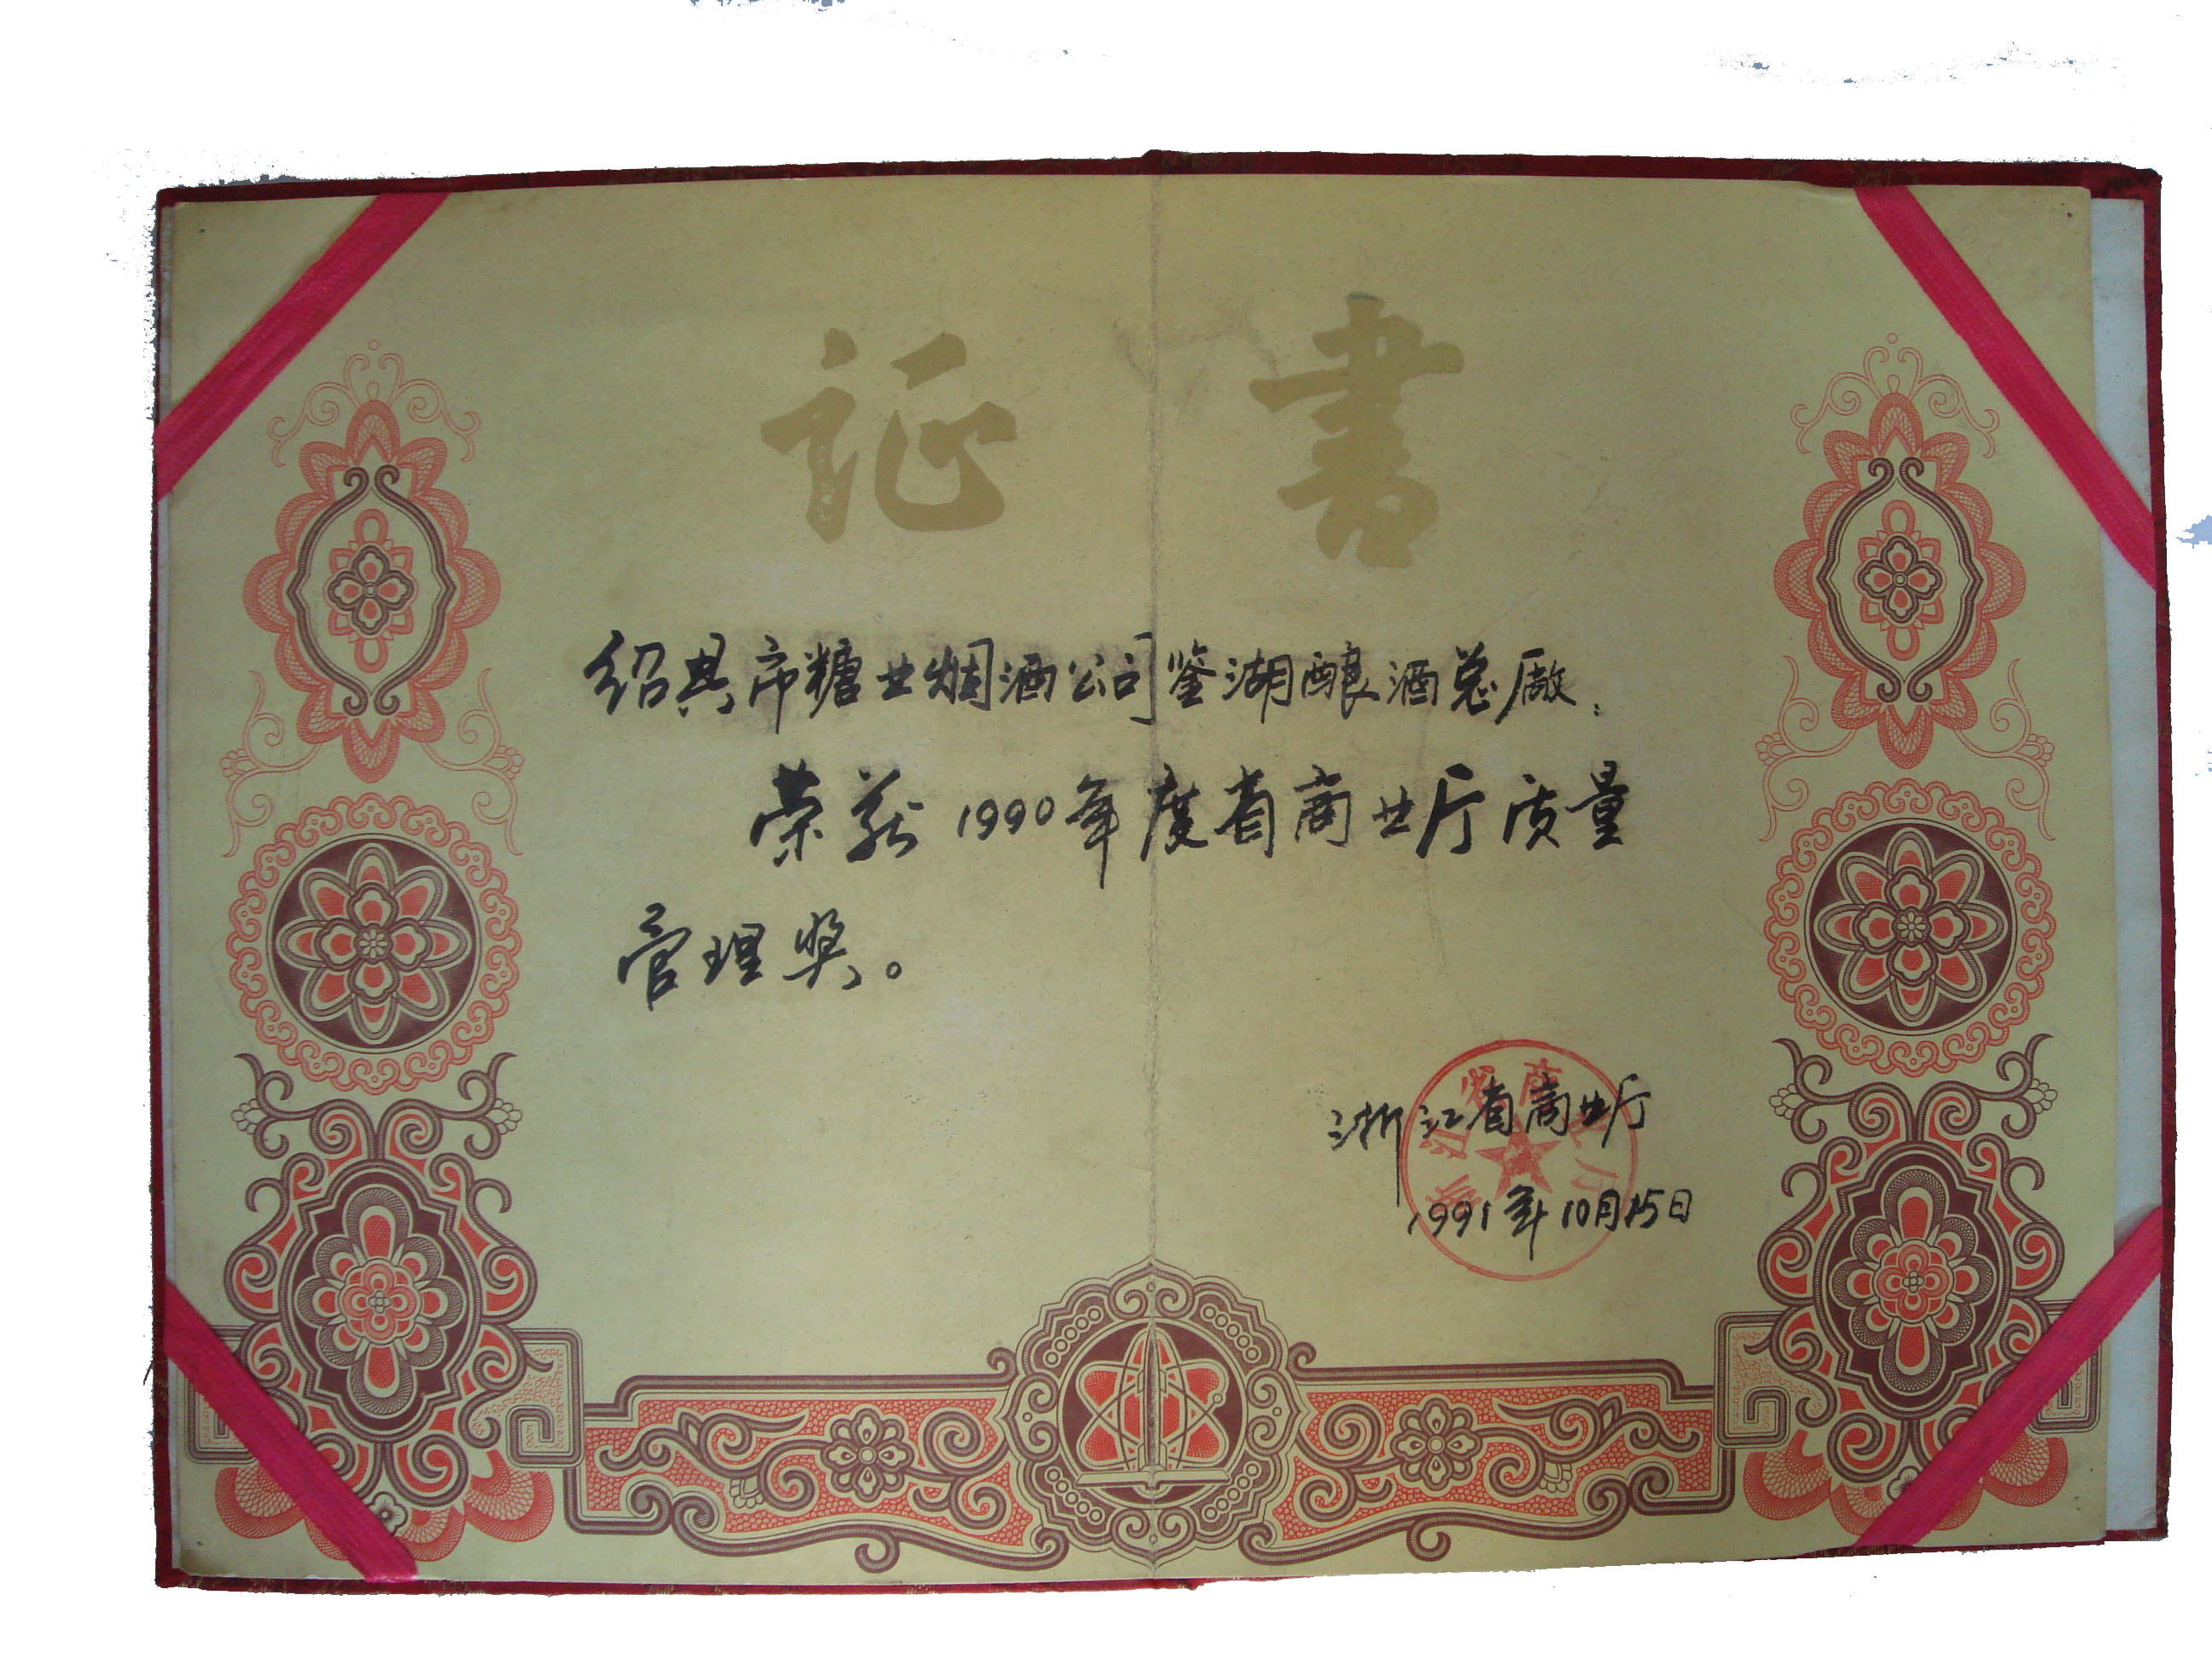 証書
绍兴市糖业烟酒公司鉴湖酿酒总厰:
荣获1990年度省商业厅质量
管理奖。
浙江省商业厅
1991年10月15日
浙江省商业厅